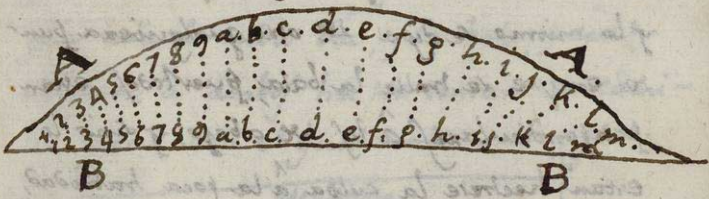 A A
1 2 3 4 5 6 7 8 9 a. b. c. d. e. f. g. h. i. j. k. l. m.
1 2 3 4 5 6 7 8 9 a. b. c. d. e. f. g. h. i. j. k l m
B B